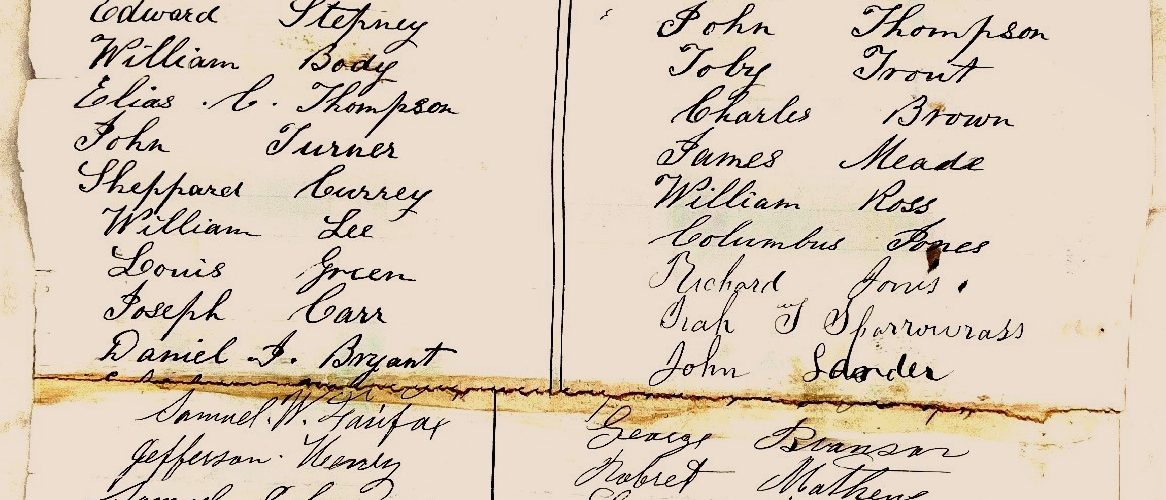 Edward Stepney
William Body
Elias C. Thompson
John Turner
Sheppard Currey
William Lee
Louis Green
Joseph Carr
Daniel J. Bryant
Samuel. W. Fairfax
Jefferson Henry
Samuel
John Thompson
Toby Trout
Charles Brown
James Meade
William Ross
Columbus Jones
Richard Jones.
Sparrowrass
John Sander
George Branson
Robret Mathews